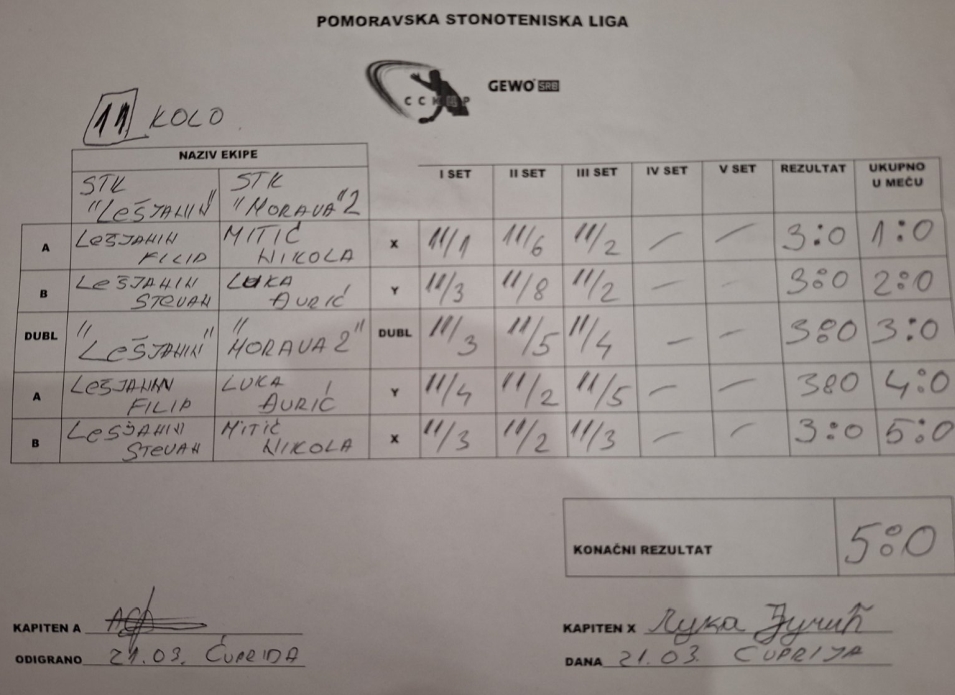 POMORAVSKA STONOTENISKA LIGA
GEWO SRB
11 KOLO
NAZIV EKIPE
I SET II SET III SET IV SET V SET REZULTAT UKUPNO U MEČU
STK "LEŠJANIN" STK "MORAVA" 2
A LEŠJANIN FILIP MITIĆ NIKOLA X 11/1 11/6 11/2 — — 3:0 1:0
B LEŠJANIN STEVAN LUKA ĐURIĆ Y 11/3 11/8 11/2 — — 3:0 2:0
DUBL "LEŠJANIN" "MORAVA 2" DUBL 11/3 11/5 11/4 — — 3:0 3:0
A LEŠJANIN FILIP LUKA ĐURIĆ Y 11/4 11/2 11/5 — — 3:0 4:0
B LEŠJANIN STEVAN MITIĆ NIKOLA X 11/3 11/2 11/3 — — 3:0 5:0
KONAČNI REZULTAT 5:0
KAPITEN A
KAPITEN X Лука Ђурић
ODIGRANO 21.03. ĆUPRIJA
DANA 21.03. ĆUPRIJA